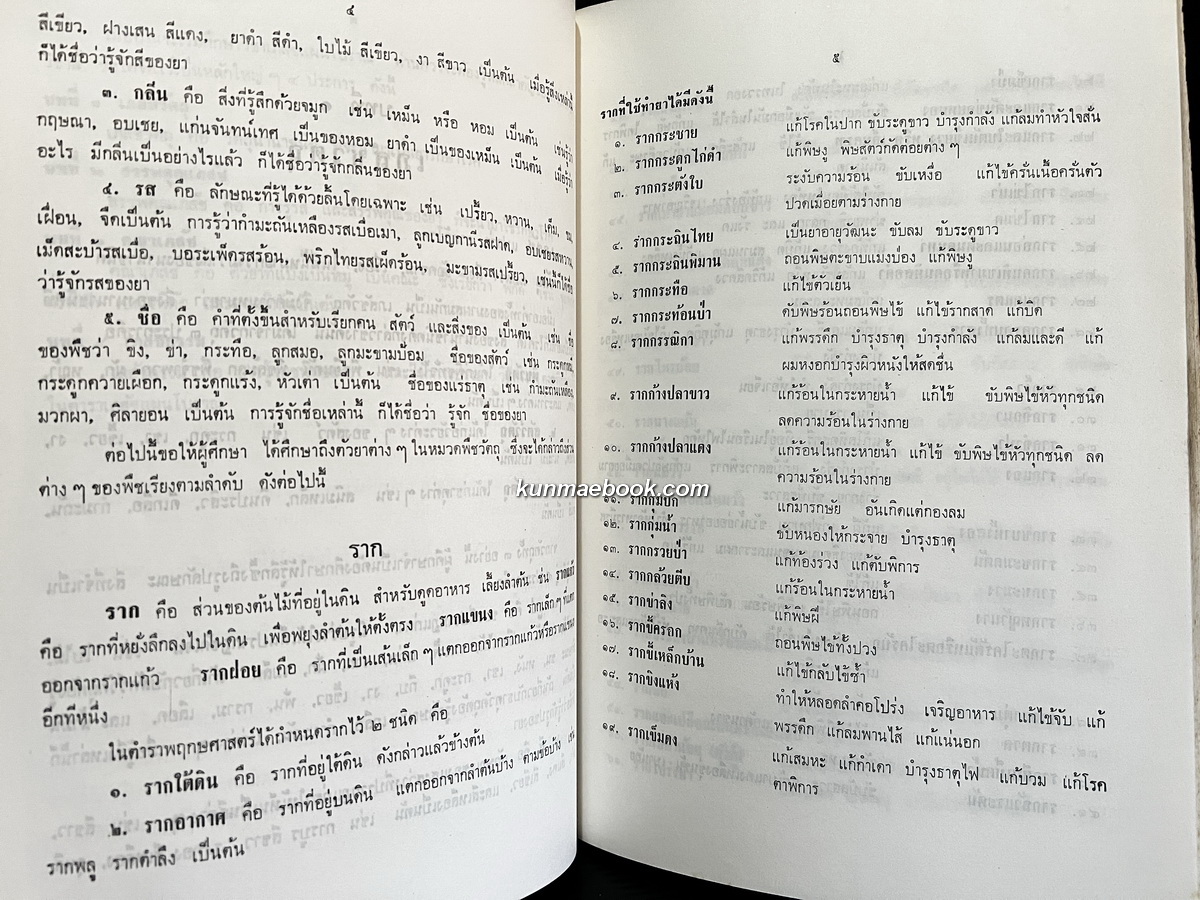 ๔
สีเขียว, ฝางเสน สีแดง, ยาดำ สีดำ, ใบไม้ สีเขียว, งา สีขาว เป็นต้น เมื่อรู้สิ่งเหล่านี้
ก็ได้ชื่อว่ารู้จักสีของยา
๓. กลิ่น คือ สิ่งที่รู้สึกด้วยจมูก เช่น เหม็น หรือ หอม เป็นต้น เช่นรู้ว่า
กฤษณา, อบเชย, แก่นจันทน์เทศ เป็นของหอม ยาดำ เป็นของเหม็น เป็นต้น เมื่อรู้ว่า
อะไร มีกลิ่นเป็นอย่างไรแล้ว ก็ได้ชื่อว่ารู้จักกลิ่นของยา
๔. รส คือ ลักษณะที่รู้ได้ด้วยลิ้นโดยเฉพาะ เช่น เปรี้ยว, หวาน, เค็ม, ขม,
เฝื่อน, จืดเป็นต้น การรู้ว่ากำมะถันเหลืองรสเบื่อเมา, ลูกเบญกานีรสฝาด, อบเชยรสหวาน,
เม็ดสะบ้ารสเบื่อ, บอระเพ็ดรสร้อน, พริกไทยรสเผ็ดร้อน, มะขามรสเปรี้ยว, เช่นนี้ก็ได้ชื่อ
ว่ารู้จักรสของยา
๕. ชื่อ คือ คำที่ตั้งขึ้นสำหรับเรียกคน สัตว์ และสิ่งของ เป็นต้น เช่น ชื่อ
ของพืชว่า ขิง, ข่า, กระทือ, ลูกสมอ, ลูกมะขามป้อม ชื่อของสัตว์ เช่น
กระดูกควายเผือก, กระดูกแร้ง, หัวเต่า เป็นต้น ชื่อของแร่ธาตุ เช่น กำมะถันเหลือง,
มวกผา, ศิลายอน เป็นต้น การรู้จักชื่อเหล่านี้ ก็ได้ชื่อว่า รู้จัก ชื่อของยา
ต่อไปนี้ขอให้ผู้ศึกษา ได้ศึกษาถึงตัวยาต่าง ๆ ในหมวดพืชวัตถุ ซึ่งจะได้กล่าวถึงส่วน
ต่าง ๆ ของพืชเรียงตามลำดับ ดังต่อไปนี้
ราก
ราก คือ ส่วนของต้นไม้ที่อยู่ในดิน สำหรับดูดอาหาร เลี้ยงลำต้น เช่น รากแก้ว
คือ รากที่หยั่งลึกลงไปในดิน เพื่อพยุงลำต้นให้ตั้งตรง รากแขนง คือ รากเล็ก ๆ ที่แตก
ออกจากรากแก้ว รากฝอย คือ รากที่เป็นเส้นเล็ก ๆ แตกออกจากรากแก้วหรือรากแขนง
อีกทีหนึ่ง
ในตำราพฤกษศาสตร์ได้กำหนดรากไว้ ๒ ชนิด คือ
๑. รากใต้ดิน คือ รากที่อยู่ใต้ดิน ดังกล่าวแล้วข้างต้น
๒. รากอากาศ คือ รากที่อยู่บนดิน แตกออกจากลำต้นบ้าง ตามข้อบ้าง เช่น
รากพลู รากตำลึง เป็นต้น
๕
รากที่ใช้ทำยาได้มีดังนี้
๑. รากกระชาย แก้โรคในปาก ขับระดูขาว บำรุงกำลัง แก้ลมทำหัวใจสั่น
๒. รากกระดูกไก่ดำ แก้พิษงู พิษสัตว์กัดต่อยต่าง ๆ
๓. รากกระตังใบ ระงับความร้อน ขับเหงื่อ แก้ไข้ครั่นเนื้อครั่นตัว
ปวดเมื่อยตามร่างกาย
๔. รากกระถินไทย เป็นยาอายุวัฒนะ ขับลม ขับระดูขาว
๕. รากกระถินพิมาน ถอนพิษตะขาบแมงป่อง แก้พิษงู
๖. รากกระทือ แก้ไข้ตัวเย็น
๗. รากกระท้อนป่า ดับพิษร้อนถอนพิษไข้ แก้ไข้รากสาด แก้บิด
๘. รากกรรณิกา แก้พรรดึก บำรุงธาตุ บำรุงกำลัง แก้ลมและดี แก้
ผมหงอกบำรุงผิวหนังให้สดชื่น
๙. รากก้างปลาขาว แก้ร้อนในกระหายน้ำ แก้ไข้ ขับพิษไข้หัวทุกชนิด
ลดความร้อนในร่างกาย
๑๐. รากก้างปลาแดง แก้ร้อนในกระหายน้ำ แก้ไข้ ขับพิษไข้หัวทุกชนิด ลด
ความร้อนในร่างกาย
kunmaebook.com
๑๑. รากกุ่มบก แก้มารกษัย อันเกิดแต่กองลม
๑๒. รากกุ่มน้ำ ขับหนองให้กระจาย บำรุงธาตุ
๑๓. รากกรวยป่า แก้ท้องร่วง แก้ตับพิการ
๑๔. รากกล้วยตีบ แก้ร้อนในกระหายน้ำ
๑๕. รากข่าลิง แก้พิษฝี
๑๖. รากขี้ครอก ถอนพิษไข้ทั้งปวง
๑๗. รากขี้เหล็กบ้าน แก้ไข้กลับไข้ซ้ำ
๑๘. รากขิงแห้ง ทำให้หลอดลำคอโปร่ง เจริญอาหาร แก้ไข้จับ แก้
พรรดึก แก้ลมพานไส้ แก้แน่นอก
๑๙. รากเข็มแดง แก้เสมหะ แก้กำเดา บำรุงธาตุไฟ แก้บวม แก้โรค
ตาพิการ